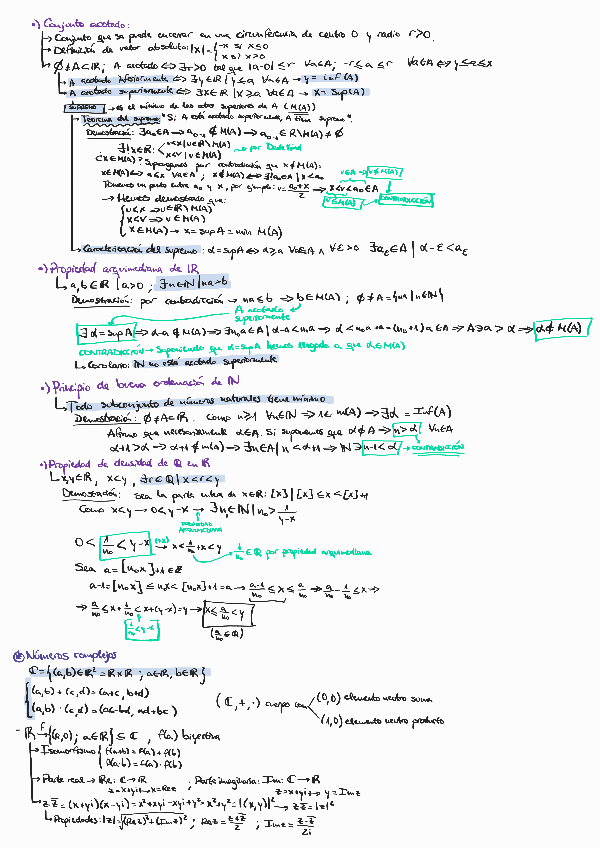 •) Conjunto acotado:
→ Conjunto que se puede encerrar en una circunferencia de centro 0 y radio r>0.
→ Definición de valor absoluto: |x| = { -x si x≤0
x si x>0
→ ∅≠A⊂ℝ; A acotado ⇔ ∃r>0 tal que |a-0|≤r ∀a∈A; -r≤a≤r
→ A acotado inferiormente ⇔ ∃y∈ℝ | y≤a ∀a∈A → y = inf(A)
→ A acotado superiormente ⇔ ∃x∈ℝ | x≥a ∀a∈A → x = Sup(A)
Supremo → es el mínimo de las cotas superiores de A (M(A))
→ Teorema del supremo "Si A está acotado superiormente, A tiene supremo".
Demostración: ∃a₀∈A → a₀₋₁ ∉ M(A) → a₀₋₁ ∈ ℝ\M(A) ≠ ∅
∃!x∈ℝ: { u<x | u∈ℝ\M(A)
x<v | v∈M(A) → por Dedekind
¿x∈M(A)? Supongamos por contradicción que x∉M(A):
x∈M(A) ⇔ a≤x ∀a∈A; x∉M(A) ⇔ ∃a₀∈A | x<a₀ v∈A → v∉M(A)
Tomemos un punto entre a₀ y x, por ejemplo: v = (a₀+x)/2 → x<v<a₀∈A
v∈M(A) CONTRADICCIÓN
→ Hemos demostrado que:
u<x → u∈ℝ\M(A)
x<v → v∈M(A)
x∈M(A) → x = sup A = min M(A)
→ Caracterización del supremo: α = sup A ⇔ α≥a ∀a∈A ∧ ∀ε>0 ∃aε∈A | α-ε<aε
•) Propiedad arquimediana de ℝ
→ a,b∈ℝ | a>0, ∃n∈ℕ | na>b
Demostración: por contradicción → na≤b → b∈M(A); ∅≠A={na | n∈ℕ}
A acotado
superiormente
∃α=sup A → α-a∉M(A) → ∃n₀a∈A | α-a<n₀a → α<n₀a+a=(n₀+1)a∈A → A∋a>α → α∉M(A)
CONTRADICCIÓN → Suponiendo que α=sup A hemos llegado a que α∉M(A)
→ Corolario: ℕ no está acotado superiormente
•) Principio de buena ordenación de ℕ
→ Todo subconjunto de números naturales tiene mínimo
Demostración: ∅≠A⊂ℝ. Como n≥1 ∀n∈ℕ → 1∈m(A) → ∃α=Inf(A)
Afirmo que necesariamente α∈A. Si suponemos que α∉A → n>α ∀n∈A
α+1>α → α+1∉m(A) → ∃n∈A | n<α+1 → ℕ∋n-1<α → CONTRADICCIÓN
•) Propiedad de densidad de ℚ en ℝ
→ x,y∈ℝ, x<y, ∃r∈ℚ | x<r<y
Demostración: Sea la parte entera de x∈ℝ: [x] | [x]≤x<[x]+1
Como x<y → 0<y-x → ∃n₀∈ℕ | n₀ > 1/(y-x)
PROPIEDAD
ARQUIMEDIANA
0 < 1/n₀ < y-x (+x) → x < 1/n₀+x < y → 1/n₀∈ℚ por propiedad arquimediana
Sea a = [n₀x]+1∈ℤ
a-1=[n₀x] ≤ n₀x < [n₀x]+1 = a → (a-1)/n₀ ≤ x ≤ a/n₀ → a/n₀ - 1/n₀ ≤ x →
→ a/n₀ ≤ x + 1/n₀ < x+(y-x) = y → x ≤ a/n₀ < y
1/n₀ < y-x (a/n₀∈ℚ)
Números complejos
ℂ={(a,b)∈ℝ²=ℝxℝ; a∈ℝ, b∈ℝ}
(a,b)+(c,d)=(a+c, b+d)
(a,b)·(c,d)=(ac-bd, ad+bc)
(ℂ,+,·) cuerpo con (0,0) elemento neutro suma
(1,0) elemento neutro producto
- ℝ →f {(a,0); a∈ℝ} ⊆ ℂ, f(a) biyectiva
→ Isomorfismo { f(a+b)=f(a)+f(b)
f(a·b)=f(a)·f(b)
→ Parte real → Re: ℂ→ℝ ; Parte imaginaria: Im: ℂ→ℝ
z=x+yi → x=Rez z=x+yi → y=Imz
→ z·z̄=(x+yi)(x-yi)=x²+xyi-xyi+y²=x²+y²=|(x,y)|² → z·z̄=|z|²
→ Propiedades: |z|=√((Rez)²+(Imz)²); Rez=(z+z̄)/2; Imz=(z-z̄)/2i